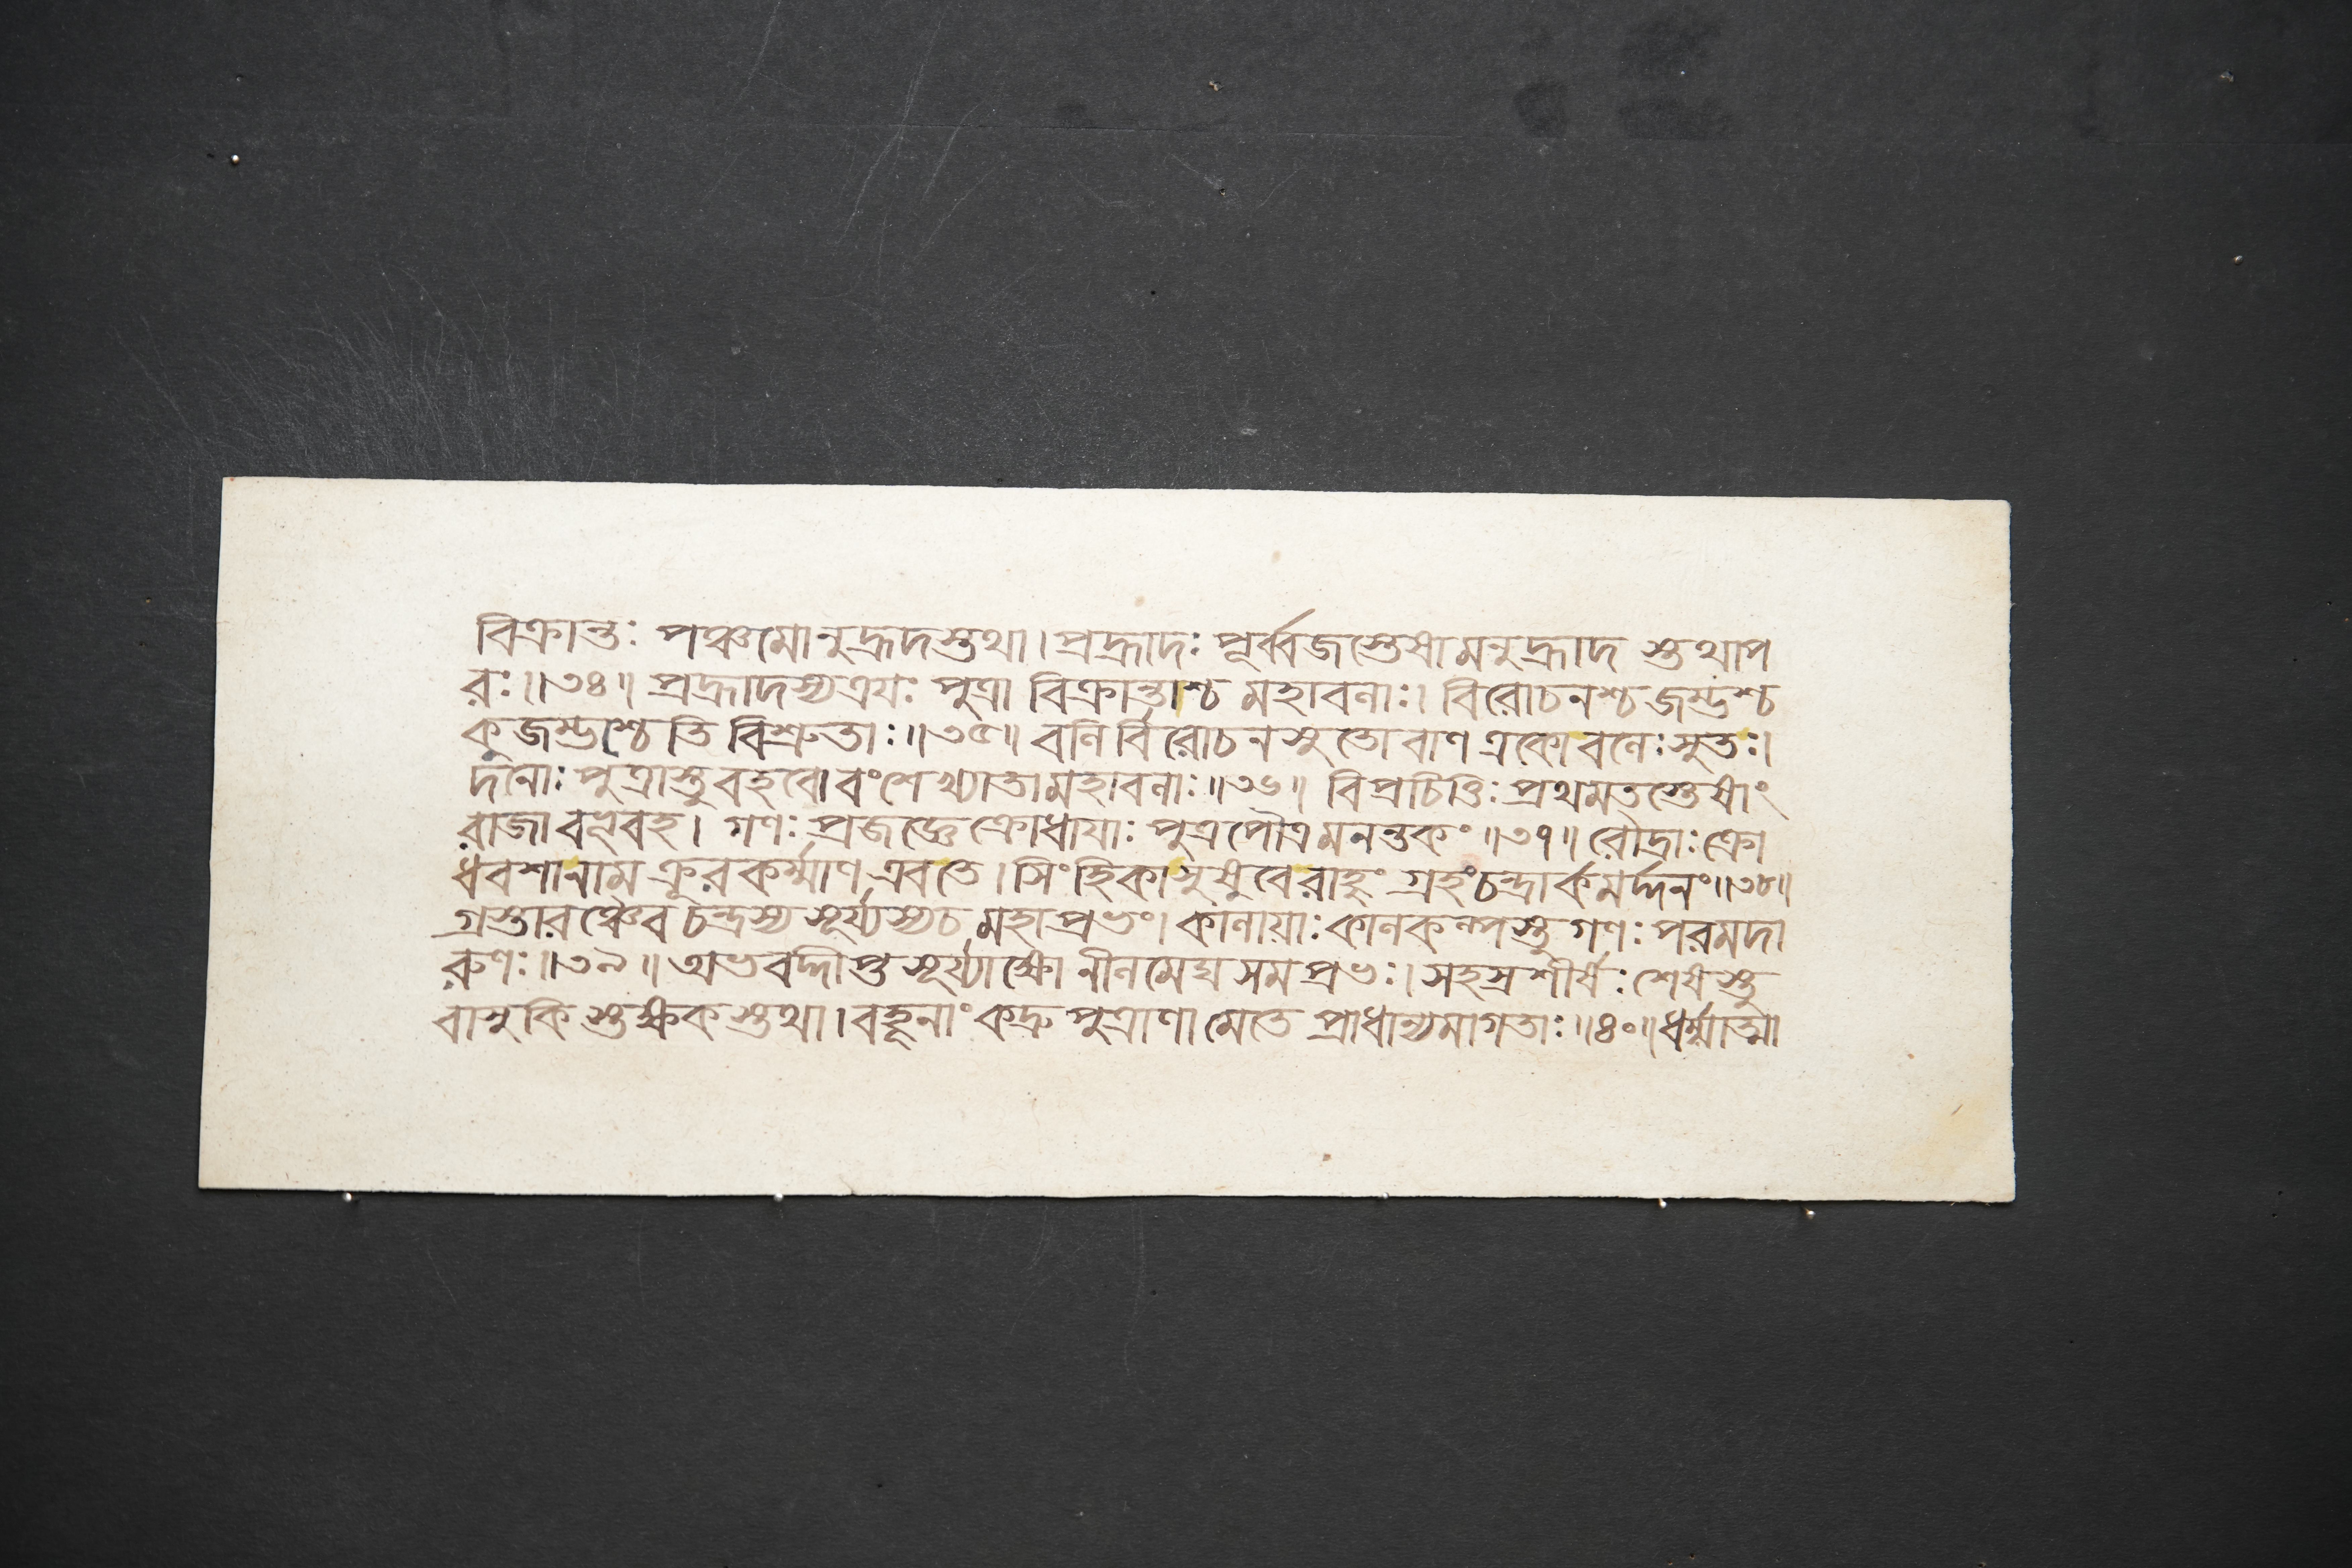 বিক্রান্তঃ পঞ্চমোনুহ্রদস্তথা। প্রহ্রাদঃ পূর্ব্বজস্তেষামনুহ্রাদ স্তথাপ
রঃ॥৩৪॥ প্রহ্রাদস্যত্রযঃ পুত্রা বিক্রান্তাশ্চ মহাবলাঃ। বিরোচনশ্চ জম্ভশ্চ
কুজম্ভশ্চেতি বিশ্রুতাঃ॥৩৫॥ বলির্বিরোচনসুতো বাণ একো বলেঃ সুতঃ।
দনোঃ পুত্রাস্তু বহবো বংশে খ্যাতা মহাবলাঃ॥৩৬॥ বিপ্রচিত্তিঃ প্রথমতস্তেষাং
রাজা বহূবহ। গণঃ প্রজজ্ঞে ক্রোধাযাঃ পুত্রপৌত্রমনন্তকং॥৩৭॥ রৌদ্রাঃ ক্রো
ধবশানাম ক্রূরকর্ম্মাণ এবতে। সিংহিকাসুষুবেরাহুং গ্রহংচন্দ্রার্কমর্দ্দনং॥৩৮॥
গ্রস্তারঞ্চৈব চন্দ্রস্য সূর্য্যস্যচ মহাপ্রভং। কালায়াঃ কালকল্পস্তু গণঃ পরমদা
রুণঃ॥৩৯॥ অভবদ্দীপ্ত সূর্য্যাক্ষো নীলমেঘ সমপ্রভঃ। সহস্রশীর্ষঃ শেষস্তু
বাসুকি স্তক্ষক স্তথা। বহূনাং কদ্রু পুত্রাণা মেতে প্রাধান্যমাগতাঃ॥৪০॥ ধর্ম্মাত্মা